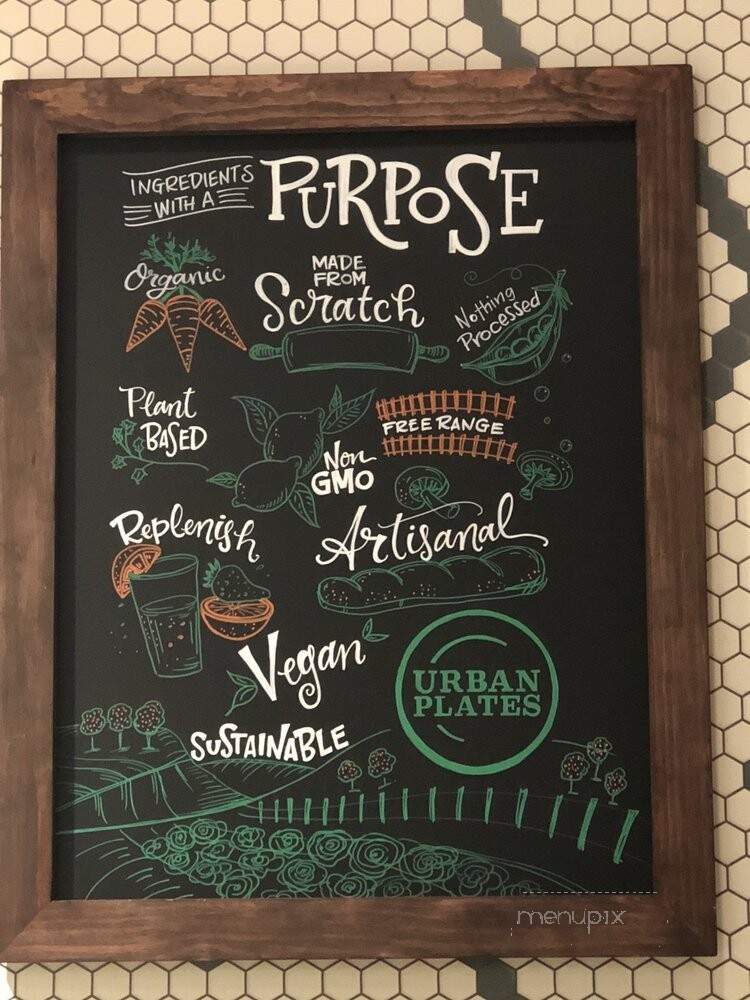 INGREDIENTS
WITH A
PURPOSE
Organic
MADE
FROM
Scratch
Nothing
Processed
Plant
BASED
FREE RANGE
Non
GMO
Replenish
Artisanal
Vegan
URBAN
PLATES
SUSTAINABLE
menupix